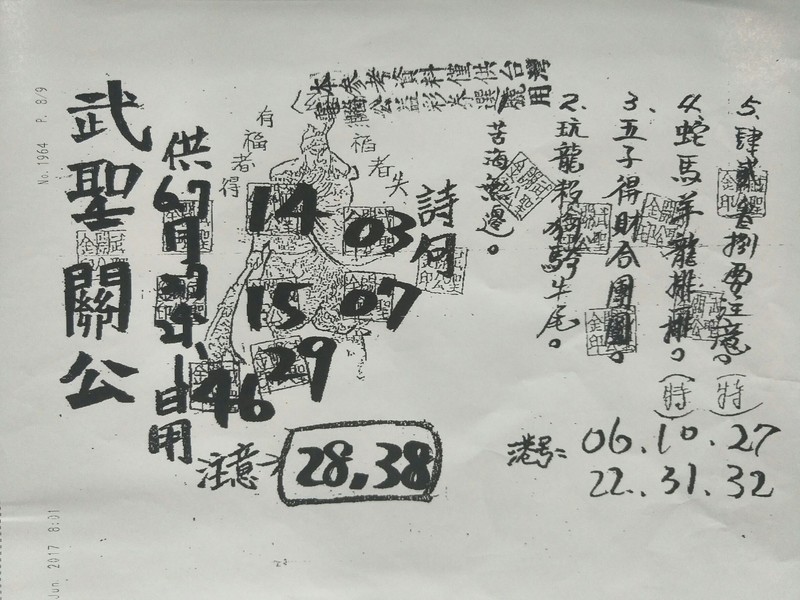 No. 1964 P. 8/9
Jun. 2017 8:01
本參考資料僅供台灣
公益彩券選號用
有福者得
福者失
武聖關公
供
6.7月
24.
日用
14
03
15
07
29
46
注意
28.38
詩句
1.苦海無邊。
2.玩龍
騎牛尾。
3.五子得財合團圓。
4.蛇馬羊龍排排。(特)
5.肆貳叁捌要注意。(特)
港号:
06.10.27
22.31.32